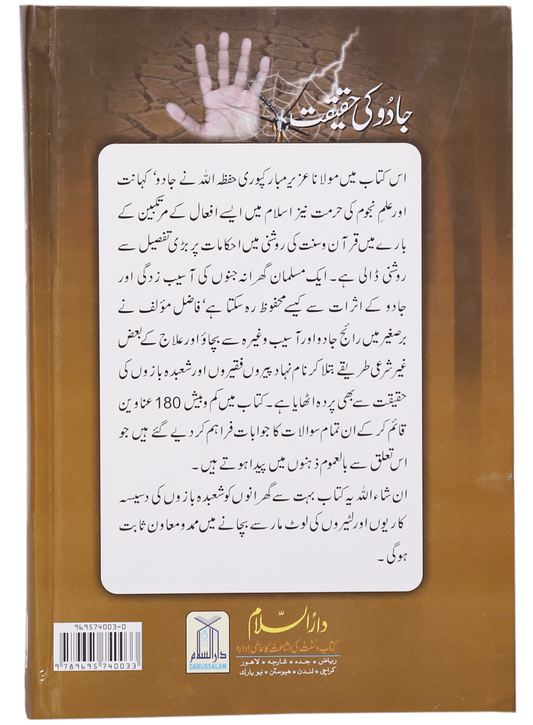 جادو کی حقیقت
اس کتاب میں مولانا عزیر مبارکپوری حفظہ اللہ نے جادو، کہانت
اور علم نجوم کی حرمت نیز اسلام میں ایسے افعال کے مرتکبین کے
بارے میں قرآن وسنت کی روشنی میں احکامات پر بڑی تفصیل سے
روشنی ڈالی ہے۔ ایک مسلمان گھرانہ جنوں کی آسیب زدگی اور
جادو کے اثرات سے کیسے محفوظ رہ سکتا ہے، فاضل مؤلف نے
برصغیر میں رائج جادو اور آسیب وغیرہ سے بچاؤ اور علاج کے بعض
غیر شرعی طریقے بتلا کر نام نہاد پیروں فقیروں اور شعبدہ بازوں کی
حقیقت سے بھی پردہ اٹھایا ہے۔ کتاب میں کم و بیش 180 عناوین
قائم کر کے ان تمام سوالات کا جوابات فراہم کر دیے گئے ہیں جو
اس تعلق سے بالعموم ذہنوں میں پیدا ہوتے ہیں۔
ان شاء اللہ یہ کتاب بہت سے گھرانوں کو شعبدہ بازوں کی دسیسہ
کاریوں اور لٹیروں کی لوٹ مار سے بچانے میں ممد و معاون ثابت
ہوگی۔
دارالسّلام
کتاب وسنت کی اشاعت کا عالمی ادارہ
ریاض • جدہ • شارجہ • لاہور
کراچی • لندن • ہیوسٹن • نیویارک
دارالسلام
DARUSSALAM
969574003-0
9 789695 740033